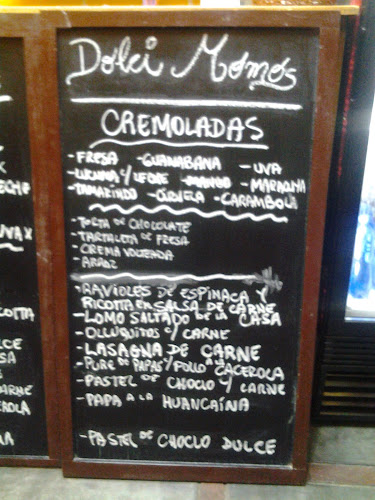 Dolci Momos
CREMOLADAS
- FRESA - GUANABANA - UVA
- LUCUMA C/ LECHE - MANGO - MARACUYA
- TAMARINDO - CIRUELA - CARAMBOLA
- TORTA DE CHOCOLATE
- TARTALETA DE FRESA
- CREMA VOLTEADA
- ARROZ
- RAVIOLES DE ESPINACA Y
RICOTTA EN SALSA DE CARNE
- LOMO SALTADO DE LA CASA
- OLLUQUITOS C/ CARNE
- LASAGNA DE CARNE
- PURE DE PAPAS / POLLO A LA CACEROLA
- PASTEL DE CHOCLO Y CARNE
- PAPA A LA HUANCAÍNA
- PASTEL DE CHOCLO DULCE